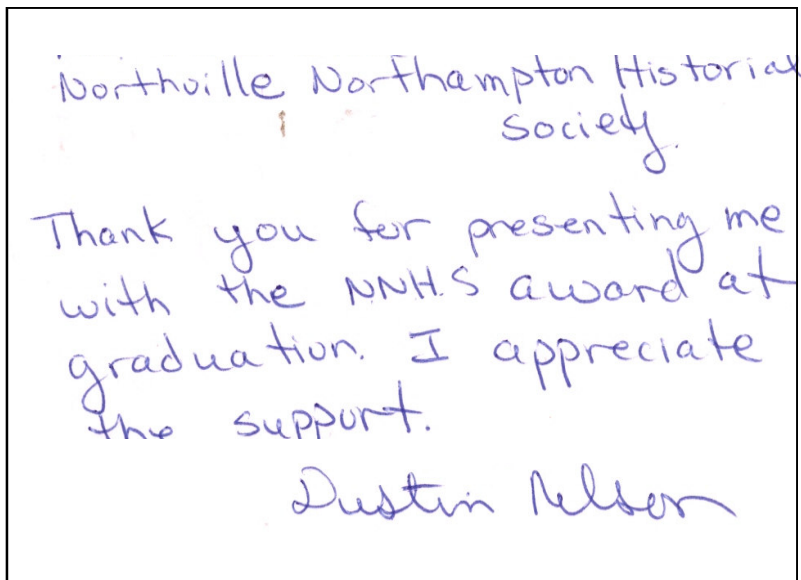 Northville Northampton Historial
society.
Thank you for presenting me
with the NNHS award at
graduation. I appreciate
the support.
Dustin Nelson